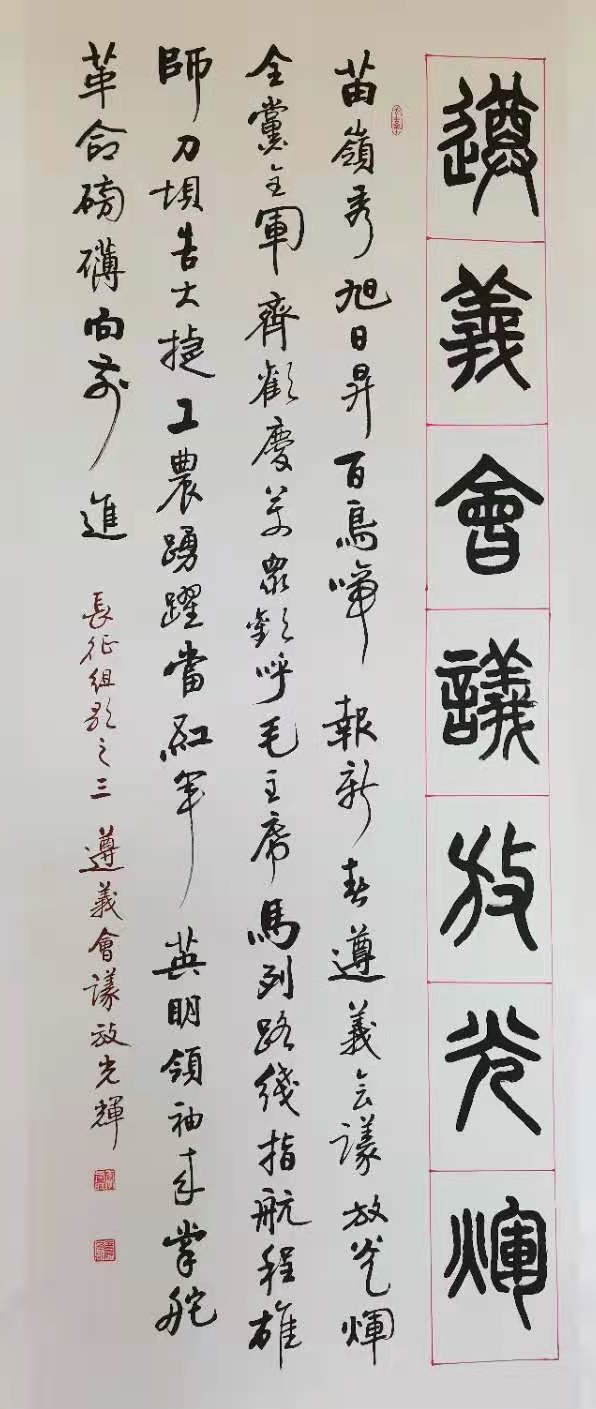 遵義會議放光輝
苗嶺秀旭日昇百鳥啼報新春遵義会議放光輝
全黨全軍齊歡慶万衆歡呼毛主席馬列路綫指航程雄
師刀埧告大捷工農踴躍當紅軍英明領袖来掌舵
革命磅礴向前進
長征組歌之三 遵義會議放光輝